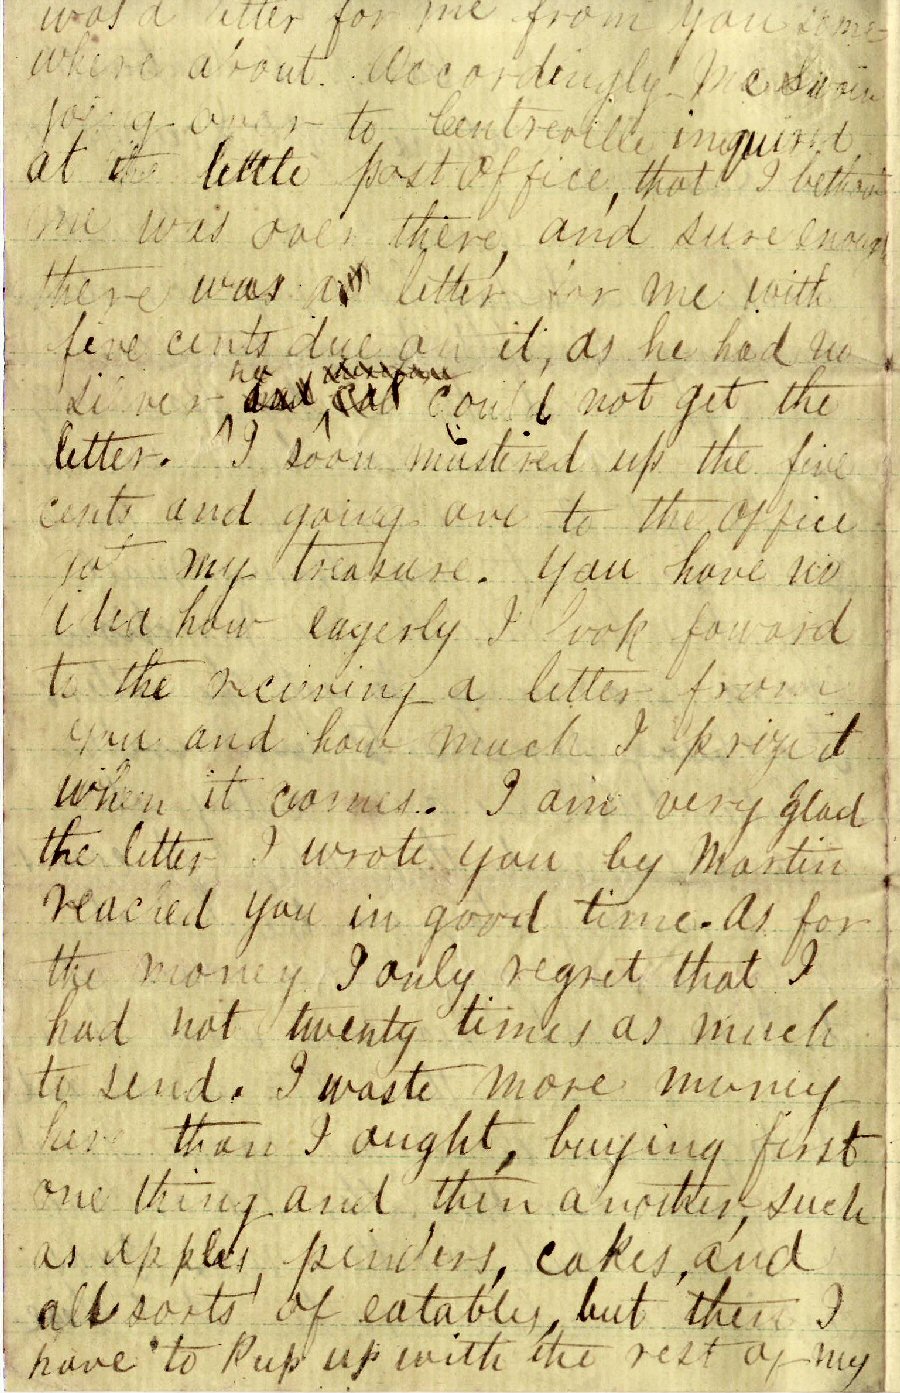 was a letter for me from you some-
where about. Accordingly Mc
going over to Centreville inquired
at the little post office, that I bethout
me was over there, and sure enough
there was a letter for me with
five cents due on it, as he had no
silver he could not get the
letter. I soon mustered up the five
cents and going ove to the office
got my treasure. You have no
idea how eagerly I look foward
to the recieving a letter from
you and how much I prize it
when it comes. I am very glad
the letter I wrote you by Martin
reached you in good time. As for
the money I only regret that I
had not twenty times as much
to send. I waste more money
here than I ought, buying first
one thing and then another, such
as apples, pinders, cakes, and
all sorts of eatables, but then I
have to keep up with the rest of my